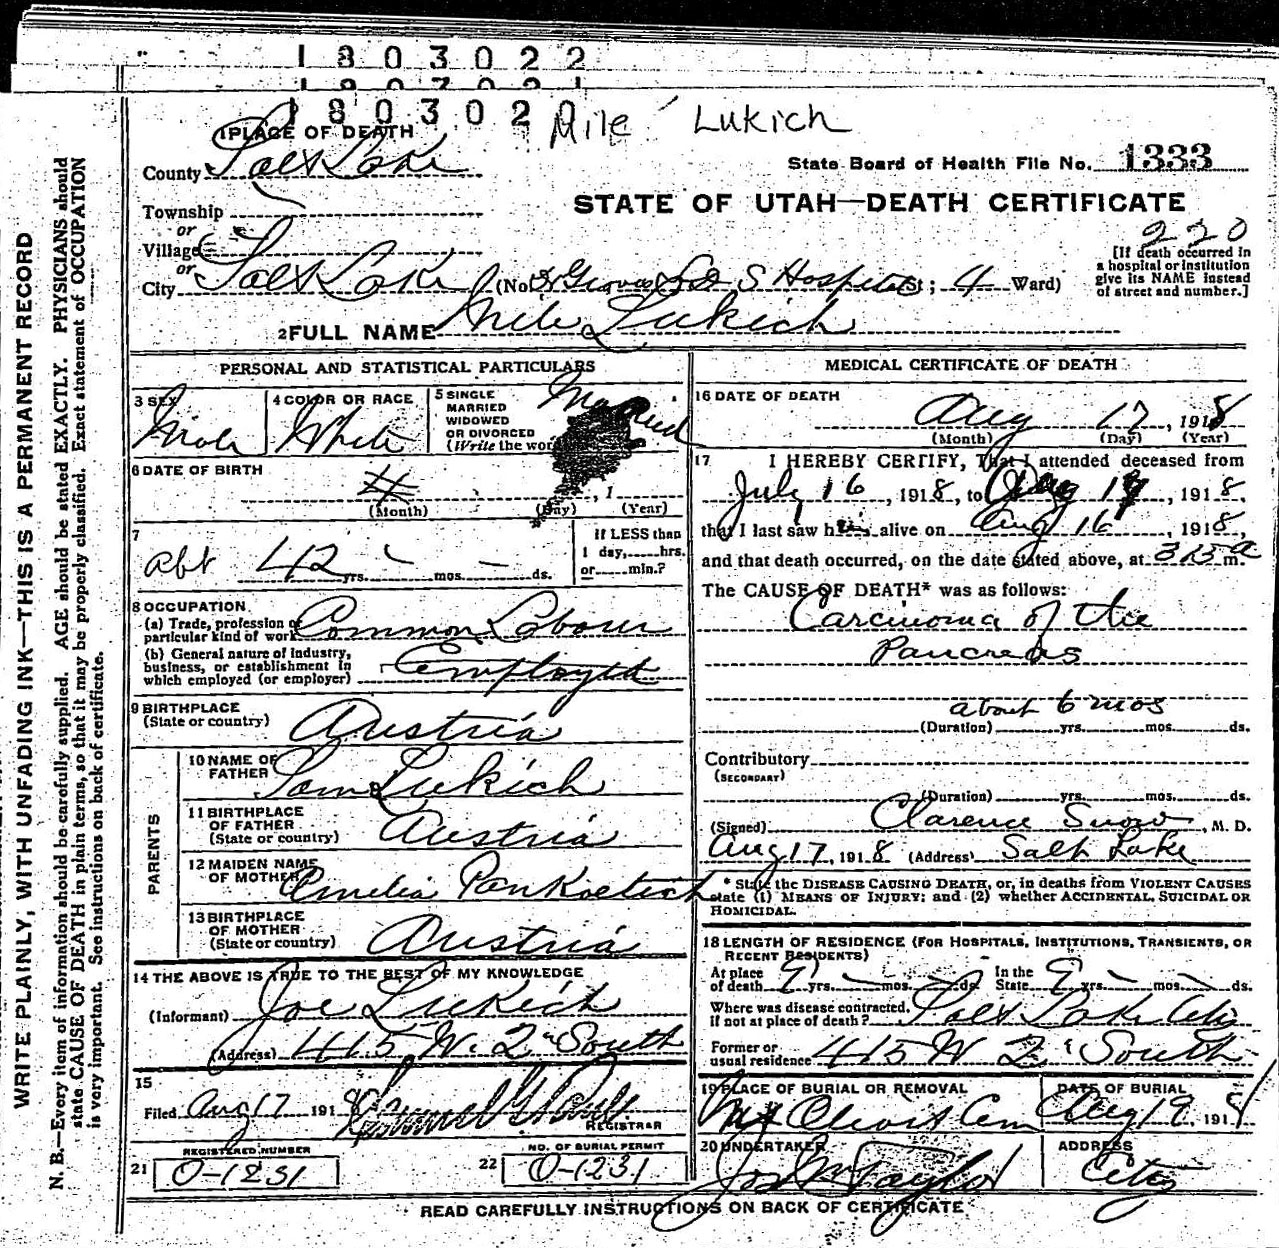 1803022
1803021
1803020 Mile Lukich
1 PLACE OF DEATH
County Salt Lake
State Board of Health File No. 1333
Township
STATE OF UTAH—DEATH CERTIFICATE
or
Village
220
or
City Salt Lake (No. L D S Hospital St; 4 Ward)
[If death occurred in
a hospital or institution
give its NAME instead
of street and number.]
2 FULL NAME Mile Lukich
PERSONAL AND STATISTICAL PARTICULARS
3 SEX Male
4 COLOR OR RACE White
5 SINGLE
MARRIED
WIDOWED
OR DIVORCED
(Write the word) Married
6 DATE OF BIRTH
, 1
(Month) (Day) (Year)
7
abt 42 yrs. mos. ds.
If LESS than
1 day, hrs.
or min.?
8 OCCUPATION
(a) Trade, profession or
particular kind of work Common Labour
(b) General nature of industry,
business, or establishment in
which employed (or employer) Employed
9 BIRTHPLACE
(State or country) Austria
PARENTS
10 NAME OF
FATHER Sam Lukich
11 BIRTHPLACE
OF FATHER
(State or country) Austria
12 MAIDEN NAME
OF MOTHER Emelia
13 BIRTHPLACE
OF MOTHER
(State or country) Austria
14 THE ABOVE IS TRUE TO THE BEST OF MY KNOWLEDGE
(Informant) Joe Lukich
(Address) 415 W. 2nd South
15
Filed Aug 17 1918
REGISTRAR
REGISTERED NUMBER
21 O-1231
NO. OF BURIAL PERMIT
22 O-1231
MEDICAL CERTIFICATE OF DEATH
16 DATE OF DEATH
Aug 17, 1918
(Month) (Day) (Year)
17 I HEREBY CERTIFY, That I attended deceased from
July 16, 1918, to Aug 17, 1918,
that I last saw him alive on Aug 16, 1918,
and that death occurred, on the date stated above, at 3 15 a m.
The CAUSE OF DEATH* was as follows:
Carcinoma of the
Pancreas
about 6 mos
(Duration) yrs. mos. ds.
Contributory
(SECONDARY)
(Duration) yrs. mos. ds.
(Signed) Clarence Snow, M. D.
Aug 17, 1918 (Address) Salt Lake
* State the DISEASE CAUSING DEATH, or, in deaths from VIOLENT CAUSES
state (1) MEANS OF INJURY; and (2) whether ACCIDENTAL, SUICIDAL OR
HOMICIDAL.
18 LENGTH OF RESIDENCE (FOR HOSPITALS, INSTITUTIONS, TRANSIENTS, OR
RECENT RESIDENTS)
At place
of death 9 yrs. mos. ds.
In the
State 9 yrs. mos. ds.
Where was disease contracted,
if not at place of death? Salt Lake City
Former or
usual residence 415 W 2nd South
19 PLACE OF BURIAL OR REMOVAL
Mt Olivet Cem
DATE OF BURIAL
Aug 19, 1918
20 UNDERTAKER
Jos Wm Taylor
ADDRESS
City
READ CAREFULLY INSTRUCTIONS ON BACK OF CERTIFICATE
WRITE PLAINLY, WITH UNFADING INK—THIS IS A PERMANENT RECORD
N. B.—Every item of information should be carefully supplied. AGE should be stated EXACTLY. PHYSICIANS should
state CAUSE OF DEATH in plain terms, so that it may be properly classified. Exact statement of OCCUPATION
is very important. See instructions on back of certificate.